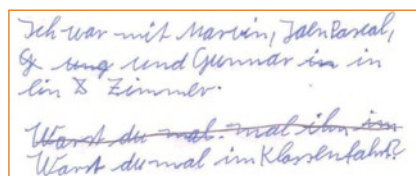 Ich war mit Marvin, Jaen Pascal,
und Gunnar in in
ein 8 Zimmer.
Warst du mal. mal ihn im
Warst du mal im Klassenfahrt?